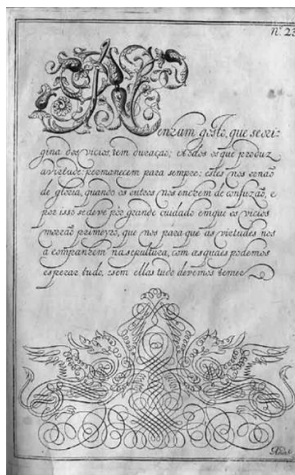 Nº. 23
Nenzum gosto, que se ori-
gina dos vicios, tem duração; e todos os que produz
a virtude permanecem para sempre; estes nos enão
de gloria, quando os outros nos enchem de confuzão, e
por isso se deve pôr grande cuidado em que os vicios
morrão primeyro, que nos para que as virtudes nos
acompanhem na sepultura, com as quaes podemos
esperar tudo, e sem ellas tudo devemos temer